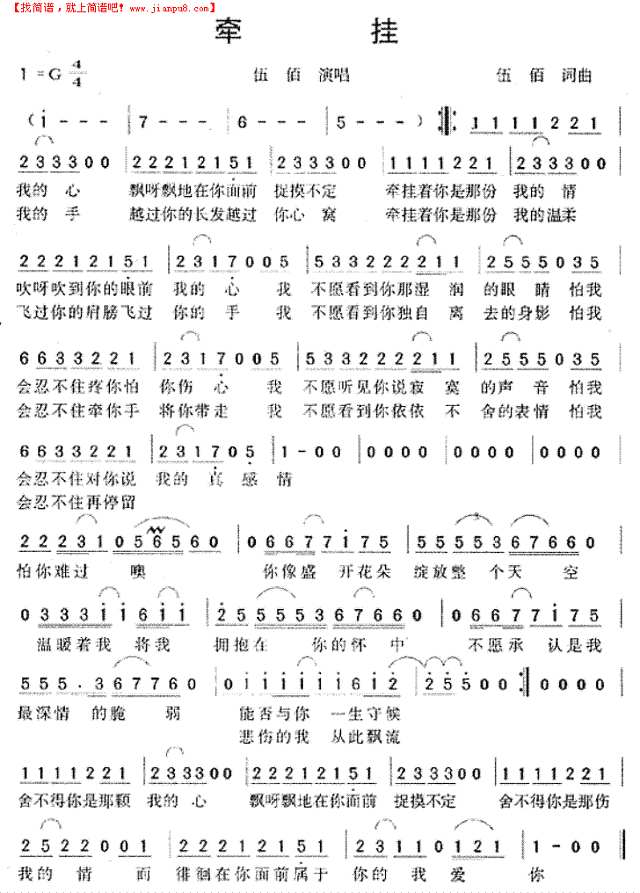 【找简谱，就上简谱吧！www.jianpu8.com】
牵 挂
1=G 4/4 伍 佰 演唱 伍 佰 词曲
( i - - - | 7 - - - | 6 - - - | 5 - - - ) ‖: 1111221 |
2333300 | 22212151 | 2333300 | 1111221 | 2333300 |
我的 心 飘呀飘地在你面前 捉摸不定 牵挂着你是那份 我的 情
我的 手 越过你的长发越过 你心 窝 牵挂着你是那份 我的温柔
22212151 | 2317005 | 533322211 | 2555035 |
吹呀吹到你的眼前 我的 心 我 不愿看到你那湿 润 的眼 睛 怕我
飞过你的肩膀飞过 你的 手 我 不愿看到你独自 离 去的身影 怕我
6633221 | 2317005 | 533322211 | 2555035 |
会忍不住疼你怕 你伤 心 我 不愿听见你说寂 寞 的声 音 怕我
会忍不住牵你手 将你带走 我 不愿看到你依依 不 舍的表情 怕我
6633221 | 231705 | 1-00 | 0000 | 0000 | 0000 |
会忍不住对你说 我的 真 感 情
会忍不住再停留
22231056560 | 06677i75 | 55555367660 |
怕你难过 噢 你像盛 开花朵 绽放整 个天 空
0333ii6ii | 25555367660 | 06677i75 |
温暖着我 将我 拥抱在 你的怀 中 不愿承 认是我
555.367760 | 0iiiii6i2 | 25500 :‖ 0000 |
最深情 的脆 弱 能否与你 一生守候
悲伤的我 从此飘流
1111221 | 2333300 | 22212151 | 2333300 | 1111221 |
舍不得你是那颗 我的 心 飘呀飘地在你面前 捉摸不定 舍不得你是那伤
2522001 | 22212151 | 231101 21 | 1-00 ‖
我的 情 而 徘徊在你面前属于 你的 我 爱 你